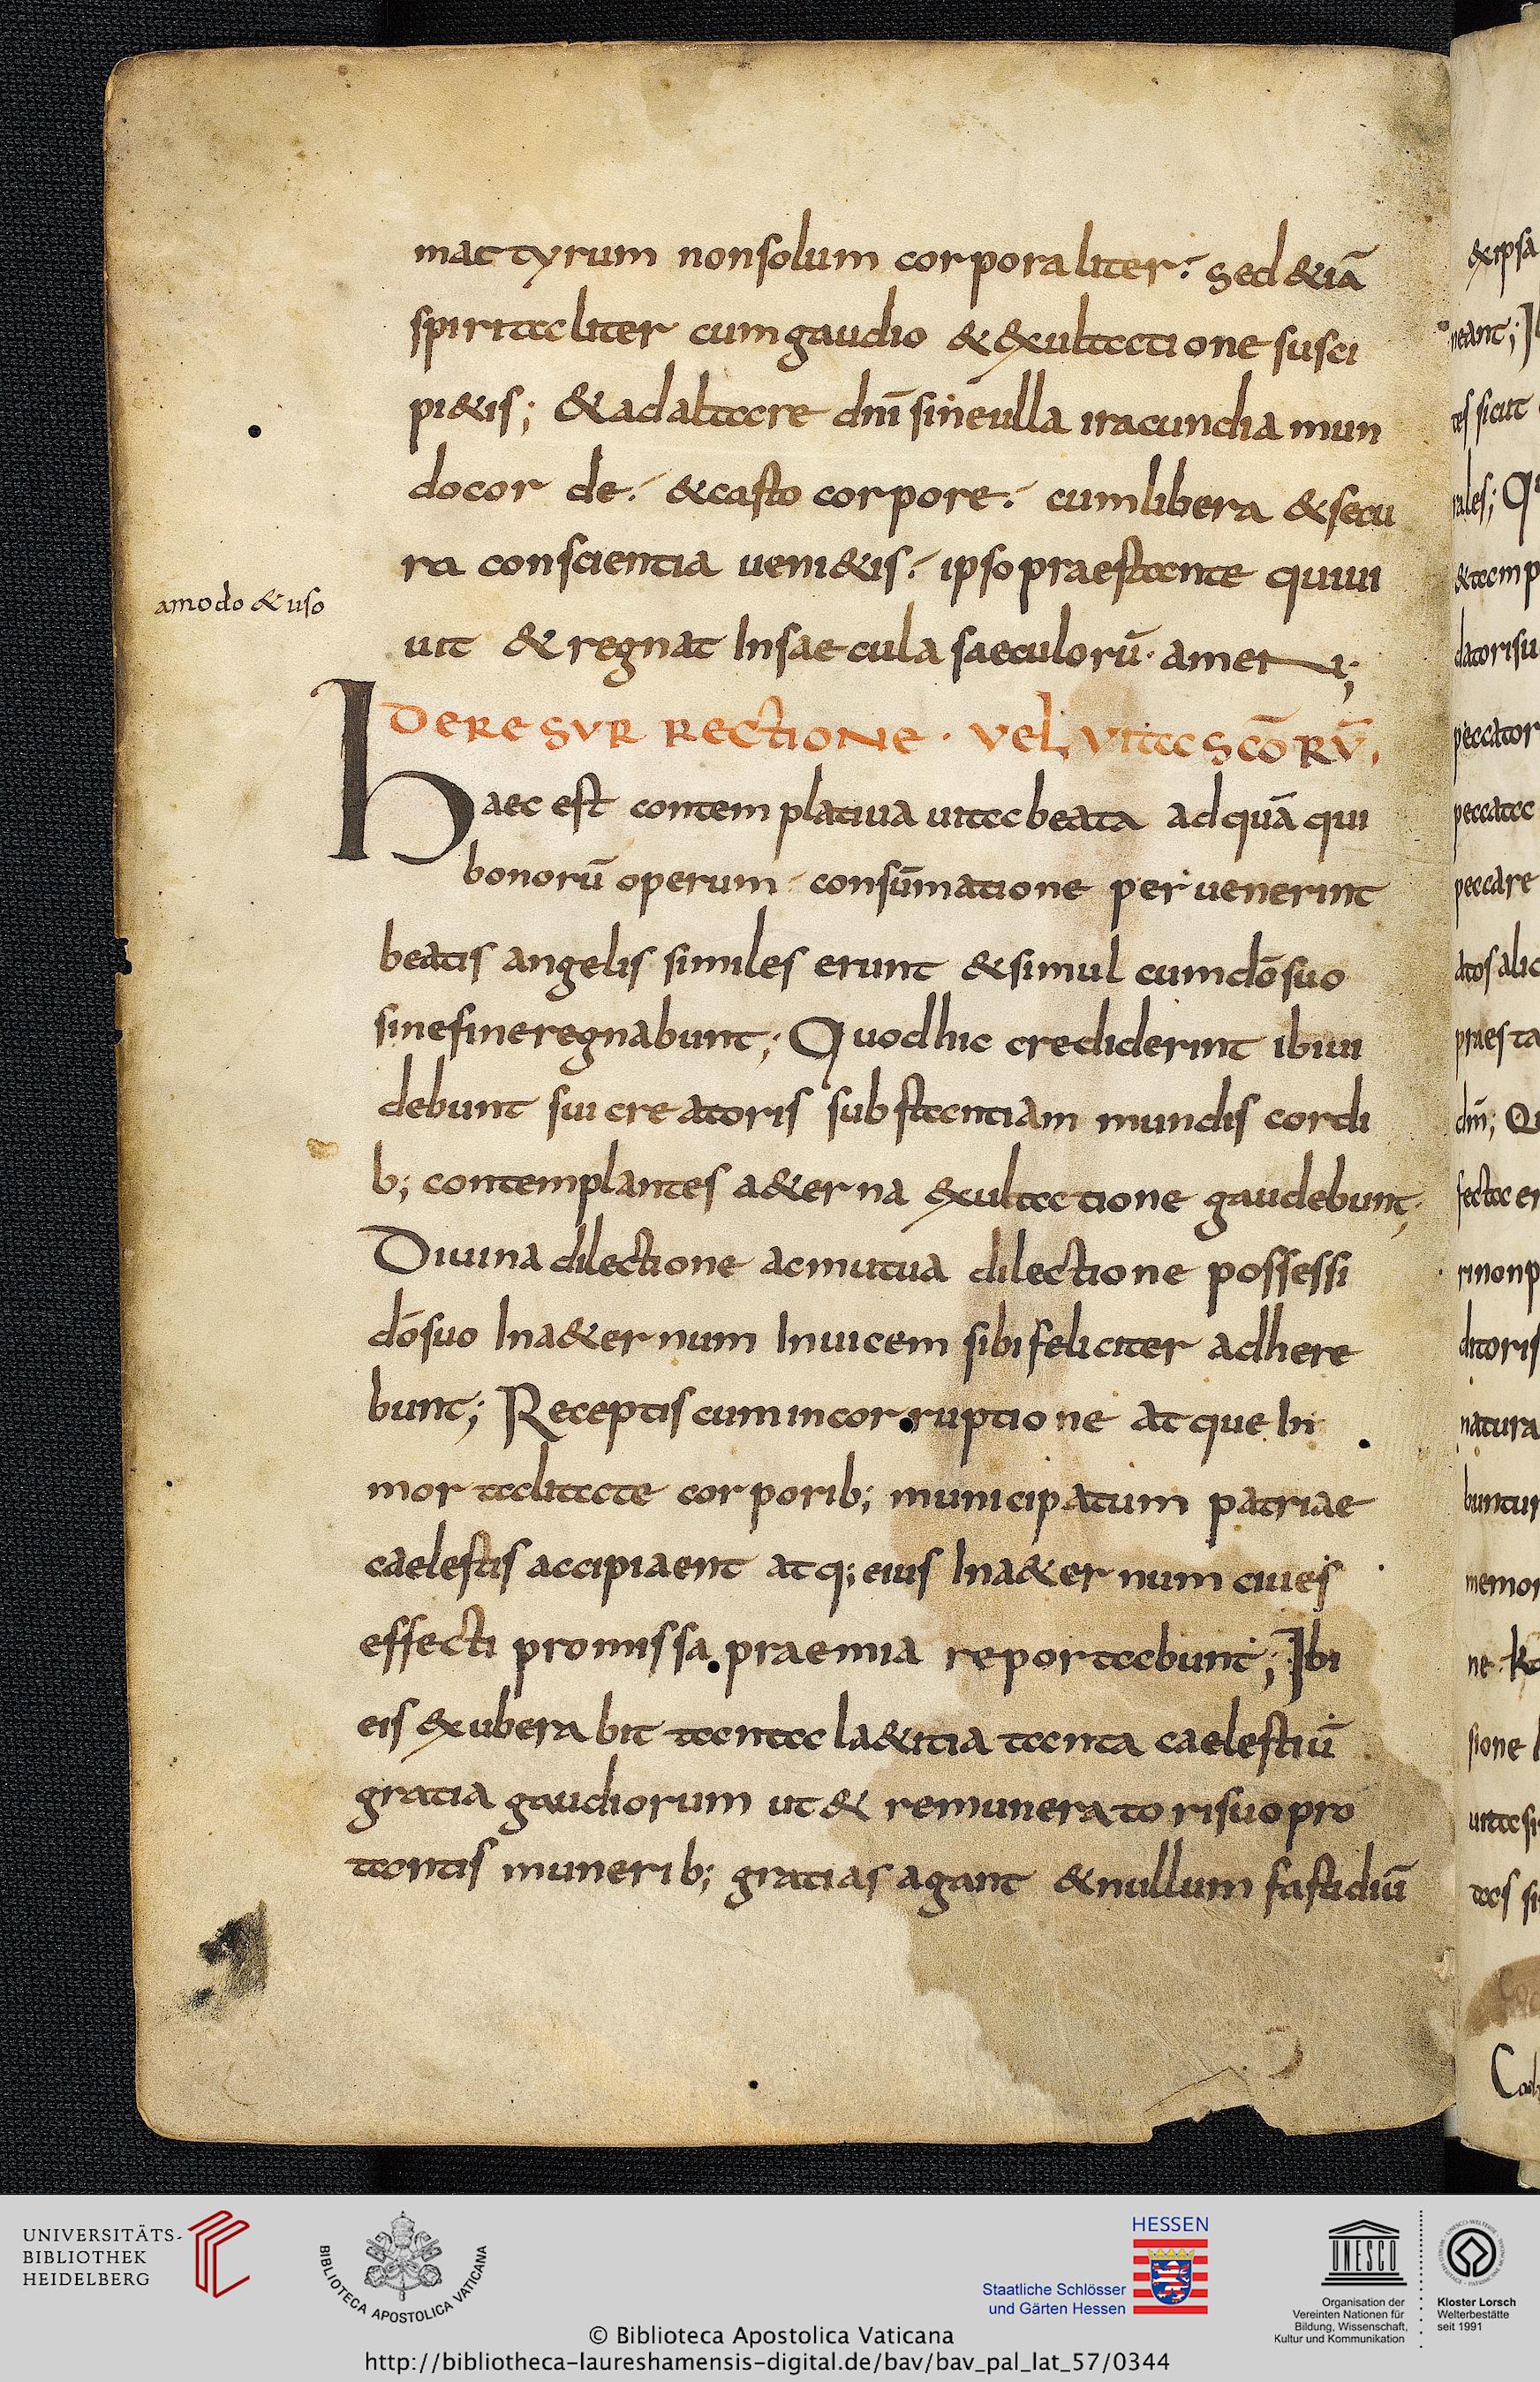 martyrum non solum corporaliter. sed &iā
spiritaliter cum gaudio & exultatione susci
pi&is; & ad altare dn̄i sine ulla iracundia mun
do cor de. & casto corpore. cum libera & secu
ra conscientia ueni&is. ipso praestante qui ui
amodo & uso
uit & regnat In saecula saeculorū. amen;
DE RESURRECTIONE. VEL VITA SCŌRŪ,
Haec est contemplatiua uita beata ad quā qui
bonorū operum consūmatione peruenerint
beatis angelis similes erunt & simul cum dō suo
sine fine regnabunt; Quod hic crediderint ibi ui
debunt sui creatoris substantiam mundis cordi
b; contemplantes a&erna exultatione gaudebunt;
Diuina dilectione ac mutua dilectione possessi
dō suo In a&ernum Inuicem sibi feliciter adhere
bunt; Receptis cum incorruptione atque In
mortalitate corporib; municipatum patriae
caelestis accipiaent atq; eius In a&ernum ciues
effecti promissa praemia reportabunt; Ibi
eis exuberabit tanta la&itia tanta caelestiū
gratia gaudiorum ut & remuneratori suo pro
tantis munerib; gratias agant & nullum fastidiū
&ipsa
neant; I
tes sicut
rales; Q
&tamp
datori su
peccator
peccata
peccare
atos alic
praesta
dn̄i; Q
fecta er
ri non p
ditoris
natura
buntur
memor
ne.
sione
uita si
tas si
UNIVERSITÄTS-
BIBLIOTHEK
HEIDELBERG
BIBLIOTECA APOSTOLICA VATICANA
HESSEN
Staatliche Schlösser
und Gärten Hessen
UNESCO
Organisation der
Vereinten Nationen für
Bildung, Wissenschaft,
Kultur und Kommunikation
Kloster Lorsch
Welterbestätte
seit 1991
© Biblioteca Apostolica Vaticana
http://bibliotheca-laureshamensis-digital.de/bav/bav_pal_lat_57/0344